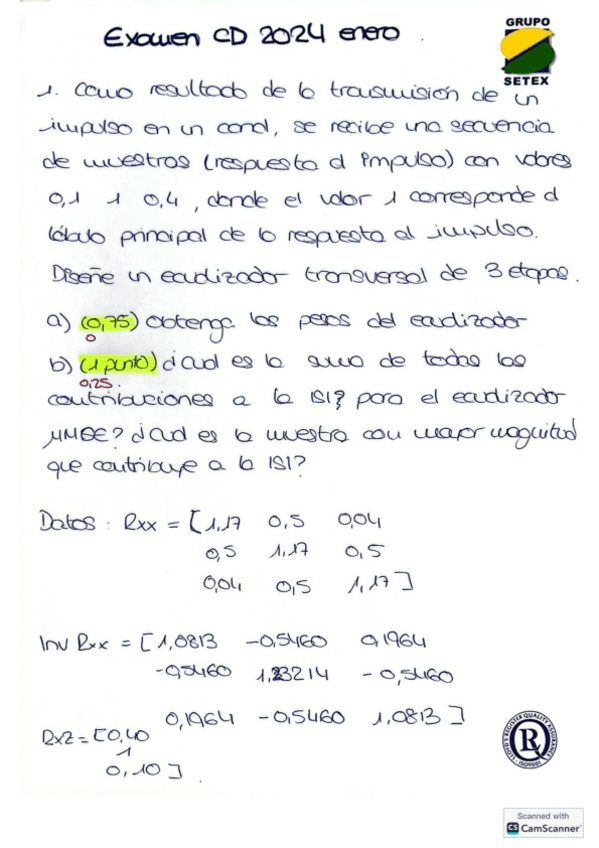 Examen CD 2024 enero.
GRUPO
SETEX
1. Como resultado de la transmisión de un
impulso en un canal, se recibe una secuencia
de muestras (respuesta al impulso) con valores
0,1 1 0,4, donde el valor 1 corresponde al
lóbulo principal de la respuesta al impulso.
Diseñe un ecualizador transversal de 3 etapas.
a) (0,75) Obtenga los pesos del ecualizador
0
b) (1 punto) ¿cual es la suma de todas las
0,25.
contribuciones a la ISI? para el ecualizador
MMSE? ¿cual es la muestra con mayor magnitud
que contribuye a la ISI?
Datos: Rxx = [1,17 0,5 0,04
0,5 1,17 0,5
0,04 0,5 1,17]
Inv Rxx = [1,0813 -0,5460 0,1964
-0,5460 1,3214 -0,5460
0,1964 -0,5460 1,0813]
Rxz = [0,40
1
0,10].
LLOYD'S REGISTER QUALITY ASSURANCE
ISO9001
Scanned with
CS CamScanner